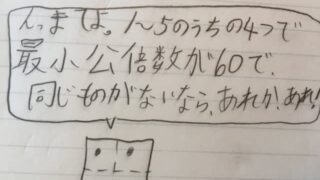 んっまてよ。1～5のうちの4つで
最小公倍数が60で、
同じものがないなら、あれか、あれ!